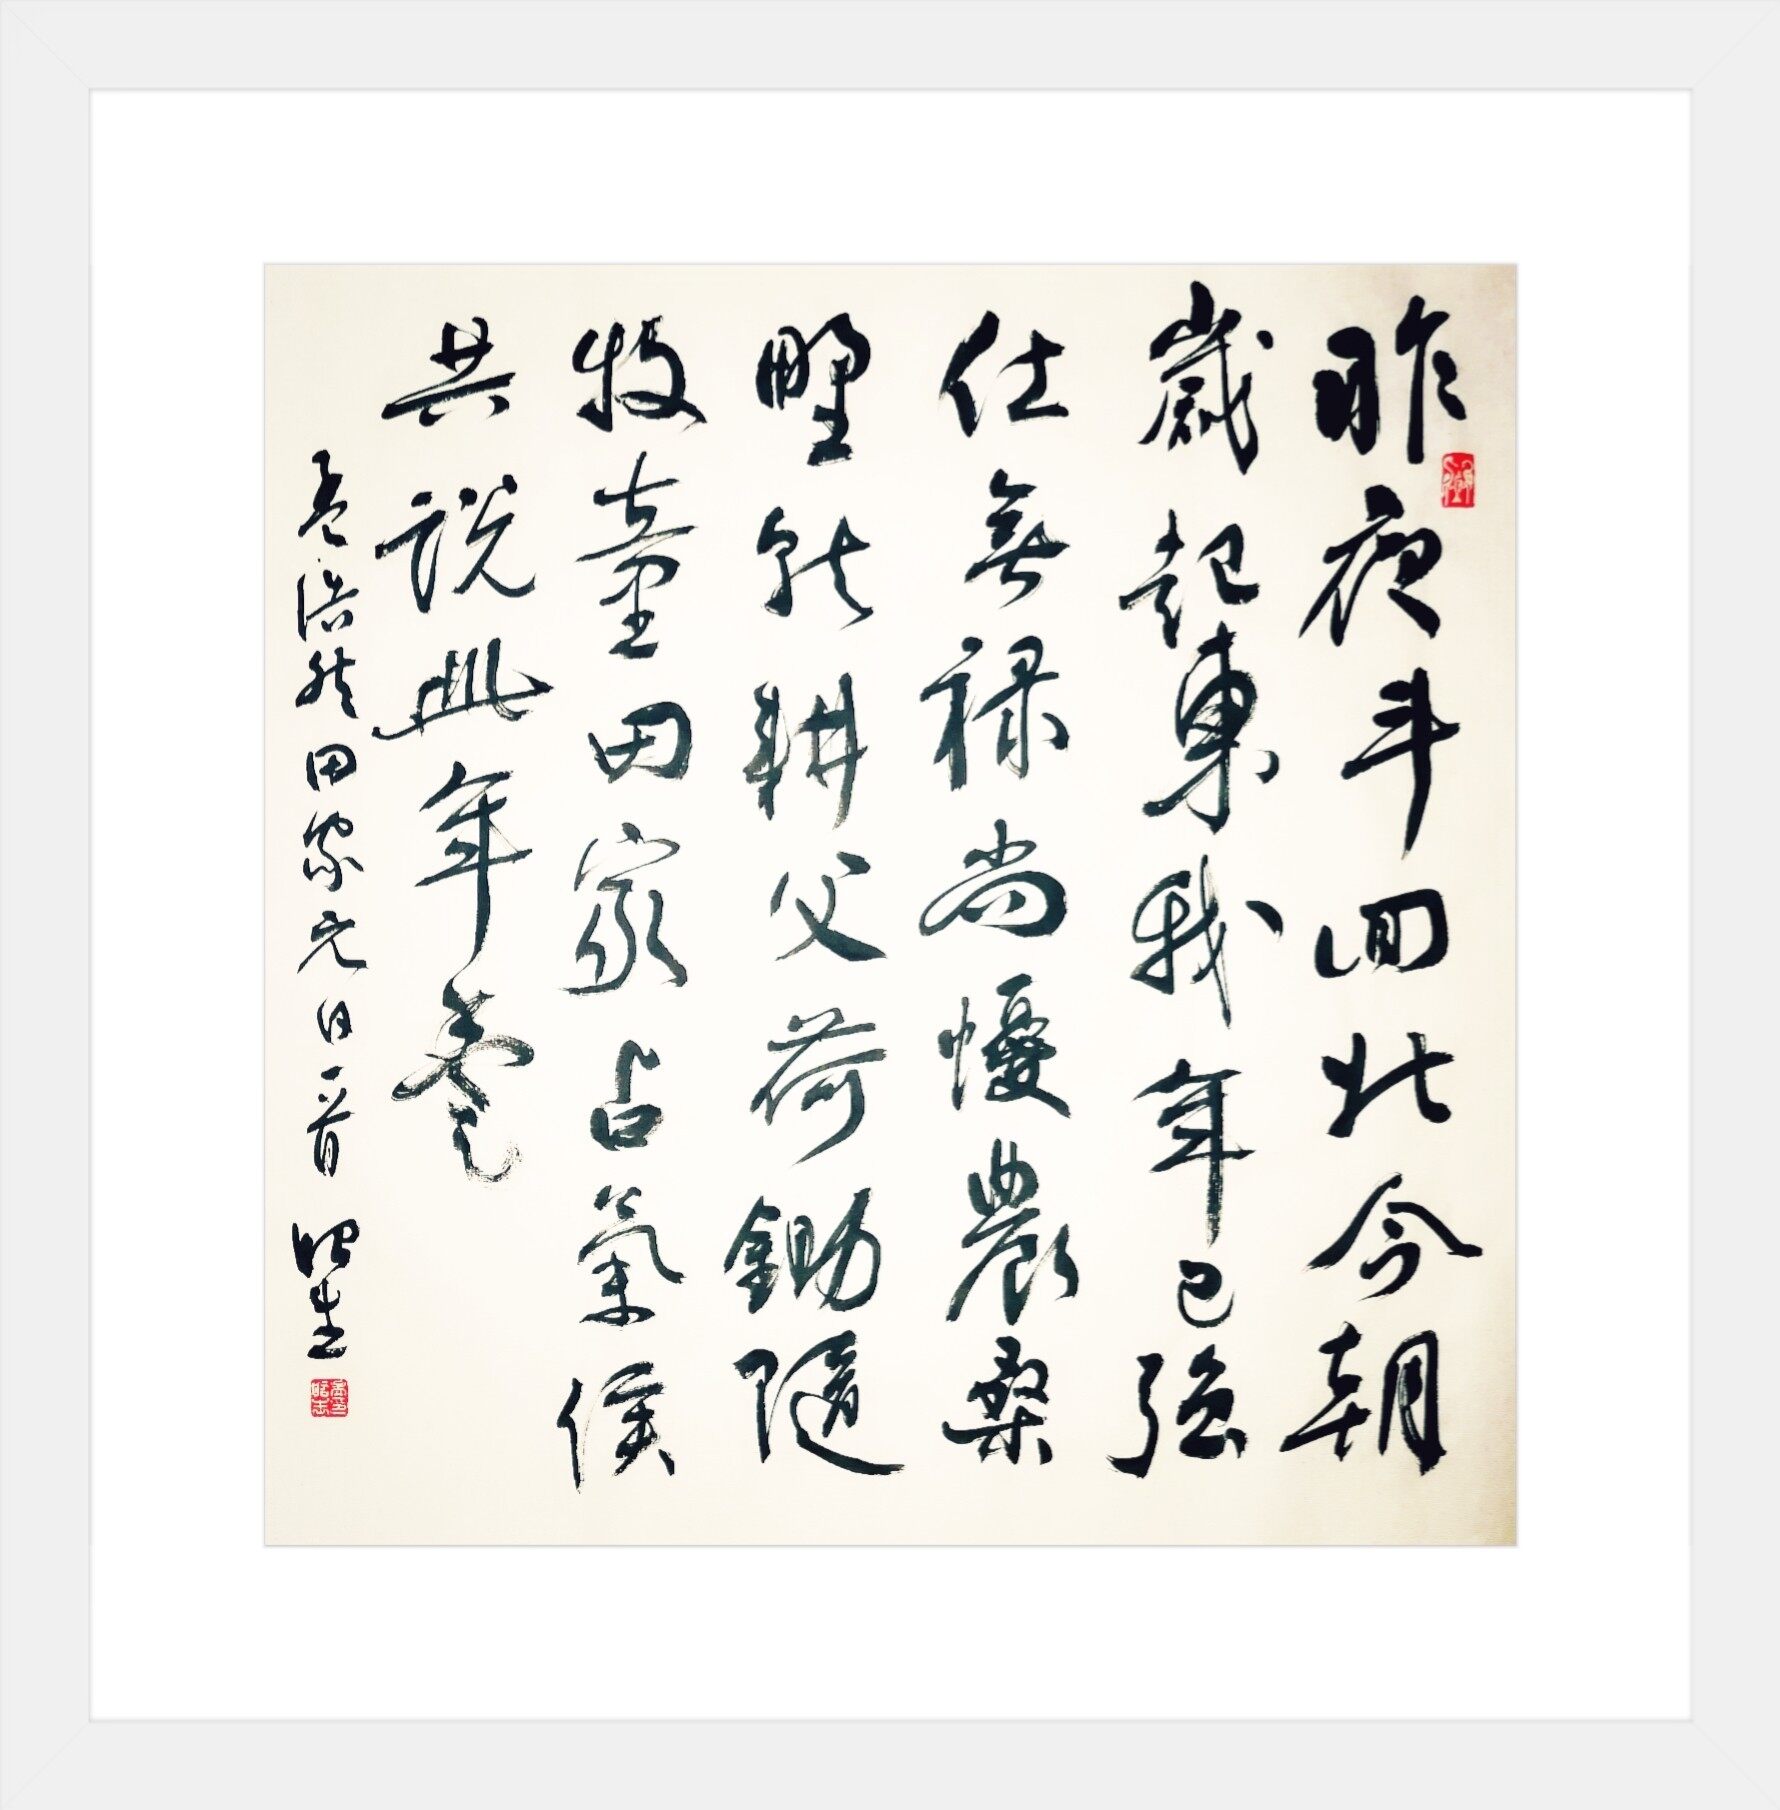 昨夜斗回北今朝
歲起東我年已強
仕無祿尚懮農桑
野就耕父荷鋤隨
牧童田家占氣候
共說此年豐
孟浩然田家元日一首